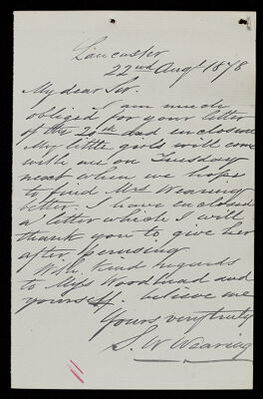 Lancaster
22nd Augt 1878
My dear Sir.
I am much
obliged for your letter
of the 21st and enclosure
My little girls will come
with me on Tuesday
next when we hope
to find Mrs Wearing
better. I have enclosed
a letter which I will
thank you to give her
after perusing
With kind regards
to Miss Woodhead and
yourself. believe me
Yours very truly
S. W Wearing